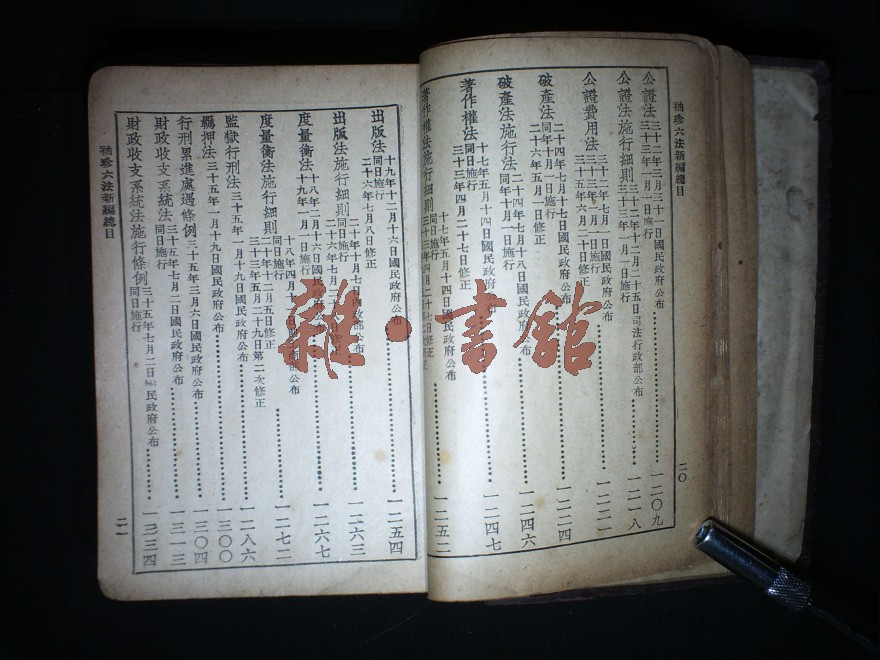 袖珍六法新編總目
公證法三十二年三月三十一日國民政府公布
三十三年一月一日施行
一二〇九
公證法施行細則三十二年十二月二十五日司法行政部公布
三十三年一月一日施行
一二一八
公證費用法三十二年七月一日國民政府公布
三十三年一月一日施行
三十五年八月二十日修正
一二二一
破產法二十四年七月十七日國民政府公布
同年十月一日施行
二十六年五月一日修正
一二二四
破產法施行法二十四年七月十八日國民政府公布
同年十月一日施行
一二四六
著作權法十七年五月十四日國民政府公布
同日施行
三十三年四月二十七日修正
一二四七
著作權法施行細則十七年五月十四日國民政府公布
同日施行
一二五二
二〇
出版法十九年十二月十六日國民政府公布
同日施行
二十六年七月八日修正
一二五四
出版法施行細則二十年十月七日內政部公布
同日施行
一二六三
度量衡法十八年二月十六日國民政府公布
十九年一月一日施行
一二六七
度量衡法施行細則十八年四月十
同日施行
二十年十二月五日修正
三十三年五月二十九日第二次修正
一二七二
監獄行刑法三十五年一月十九日國民政府公布
一二八六
羈押法三十五年一月十九日國民政府公布
一三〇〇
行刑累進處遇條例三十五年三月六日國民政府公布
一三〇四
財政收支系統法三十五年七月二日國民政府公布
同日施行
一三一三
財政收支系統法施行條例三十五年七月二日國民政府公布
同日施行
一三三四
袖珍六法新編總目
二一
雜·書館